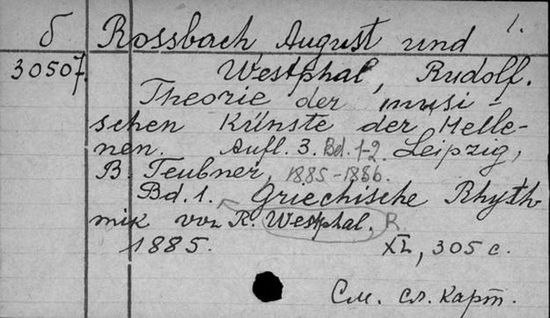 1.
б Rossbach August und
30507. Westphal, Rudolf.
Theorie der musi-
schen Künste der Helle-
nen. Aufl. 3. Bd. 1-2. Leipzig,
B. Teubner, 1885-1886.
Bd. 1. Griechische Rhyth
mik von R. Westphal. R.
1885. XL, 305 с.
См. сл. карт.